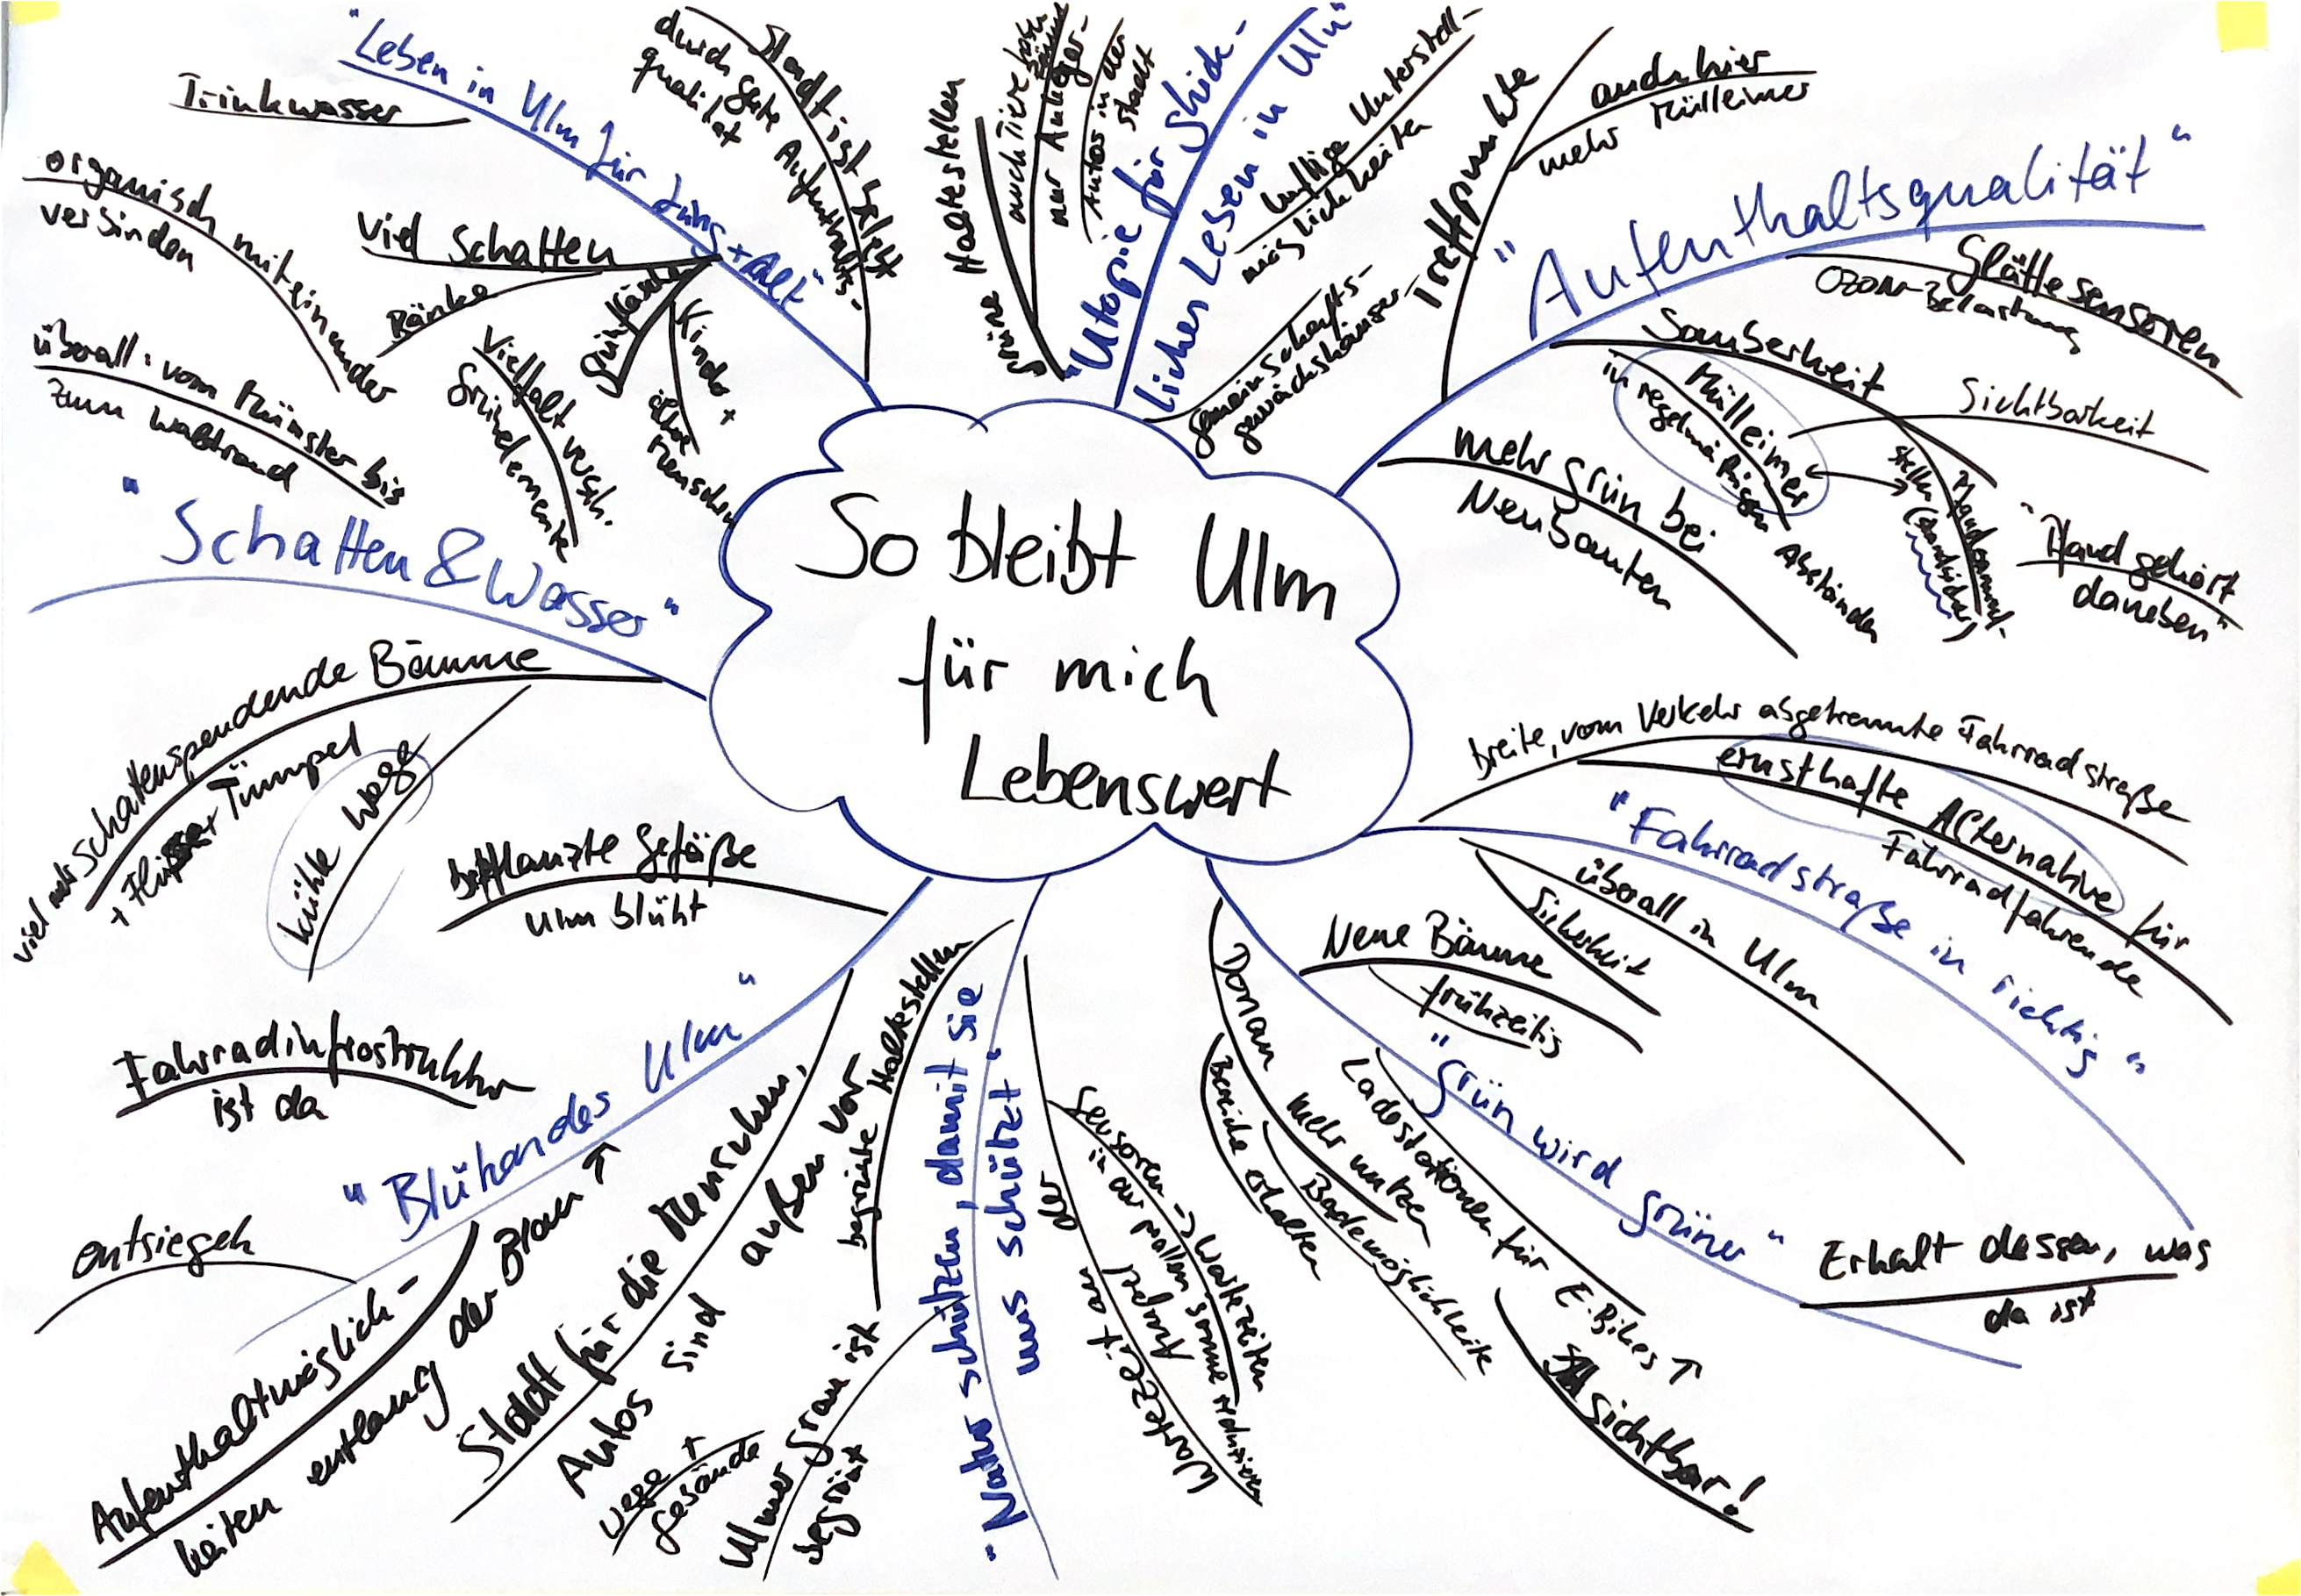 So bleibt Ulm
für mich
Lebenswert
"Leben in Ulm für Jung + Alt"
Trinkwasser
Stadt ist belebt
durch gute Aufenthalts-
qualität
viel Schatten
Bänke
Grünfläche
Kinder +
ältere
Menschen
Vielfalt versch.
Grünelemente
organisch miteinander
verbinden
überall: vom Münster bis
zum Waldrand
"Schatten & Wasser"
viel mehr schattenspendende Bäume
+ Tümpel
kühle Wege
"Blühendes Ulm"
bepflanzte Gefäße
Ulm blüht
Fahrradinfrastruktur
ist da
entsiegeln
Aufenthaltmöglich-
keiten entlang der Blau ↑
Stadt für die Menschen,
Autos sind außen vor
"Natur schützen, damit sie
uns schützt"
begrünte Haltestellen
Ulmer Grau ist
begrünt
Wege +
Gebäude
Wartezeit an
der Ampel
Sensoren -> Wartezeiten
in der prallen Sonne reduzieren
"Grün wird grüner"
Neue Bäume
frühzeitig
Donau mehr nutzen
Bereiche erhalten
Bademöglichkeite
Ladestationen für E-Bikes ↑
sichtbar!
Erhalt dessen, was
da ist
"Fahrradstraße in richtig"
breite, vom Verkehr abgetrennte Fahrradstraße
ernsthafte Alternative für
Fahrradfahrende
überall in Ulm
Sicherheit
"Aufenthaltsqualität"
Treffpunkte
auch hier
mehr Mülleimer
Glättesensoren
Ozon-Belastung
Sauberkeit
Mülleimer
in regelmäßigen Abständen
Sichtbarkeit
Pfandsamml.
stellen (Standsicher)
"Pfand gehört
daneben"
mehr grün bei
Neubauten
"Utopie für Glück-
liches Leben in Ulm"
grüne Haltestellen
auch Tiere
nur Anlieger-
Autos in der
Stadt
luftige Unterstell-
möglichkeiten
Gemeinschafts-
gewächshäuser